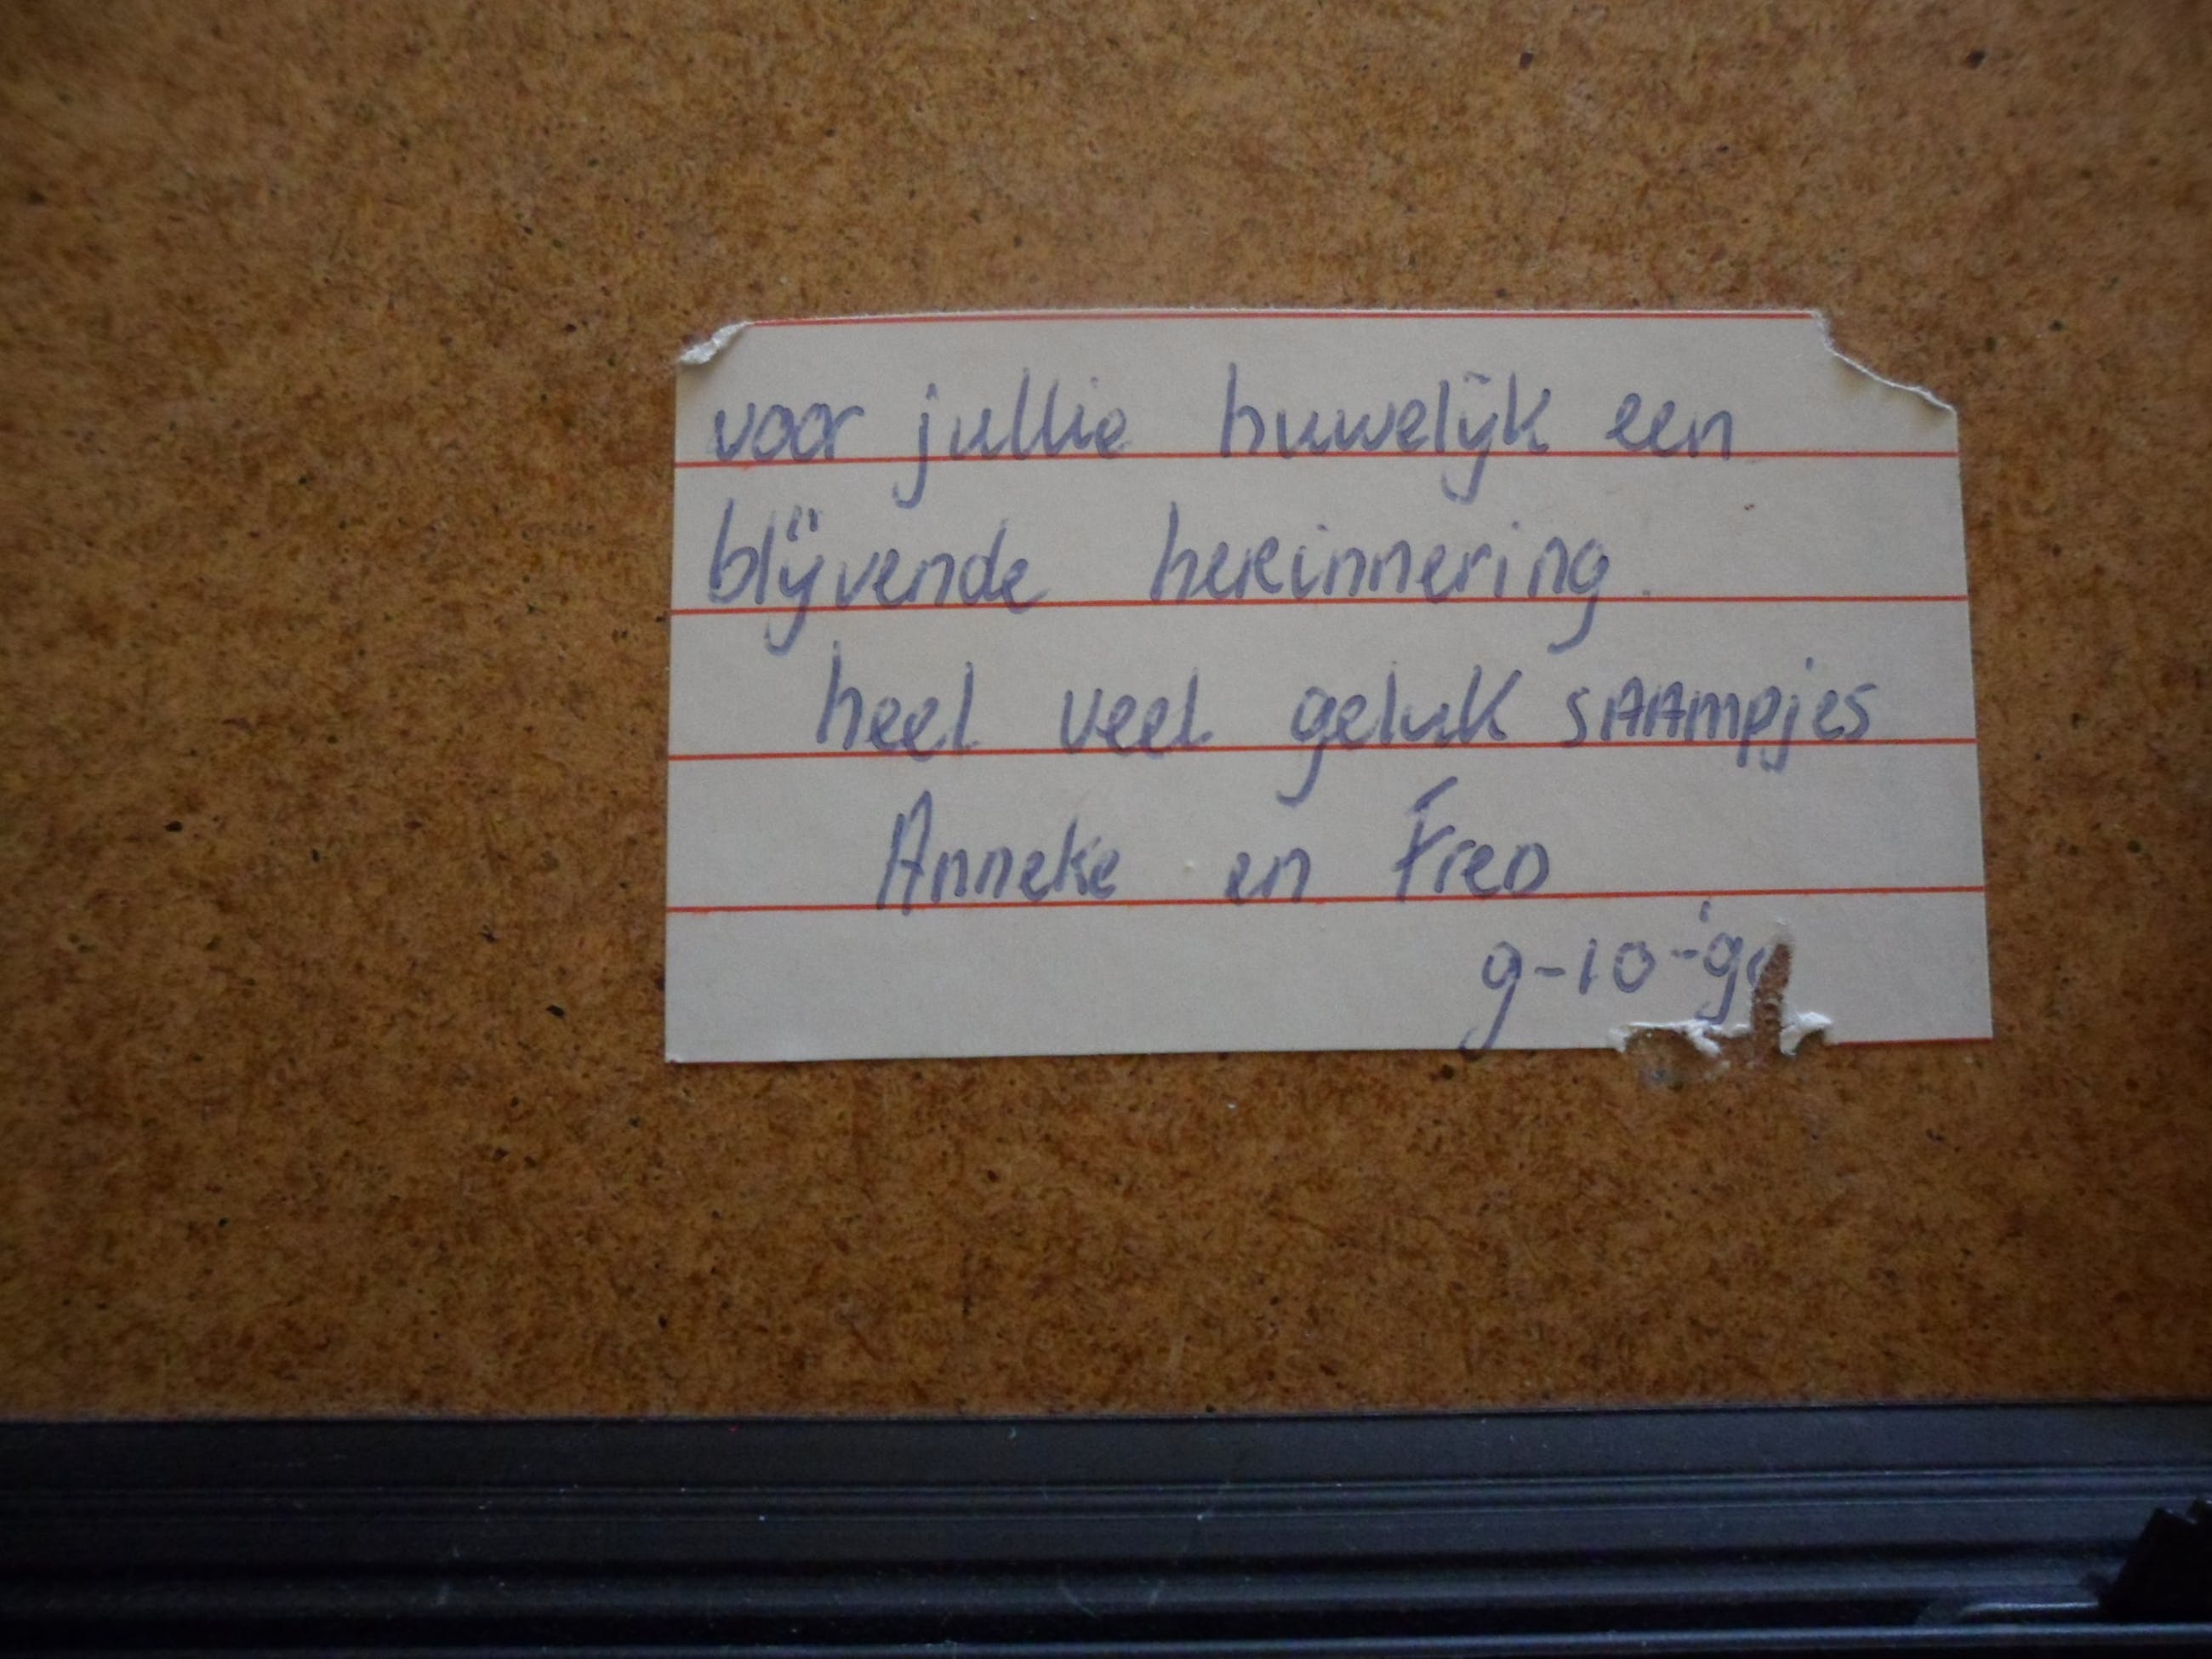 voor jullie huwelijk een
blijvende herinnering.
heel veel geluk sAAmpjes
Anneke en FreD